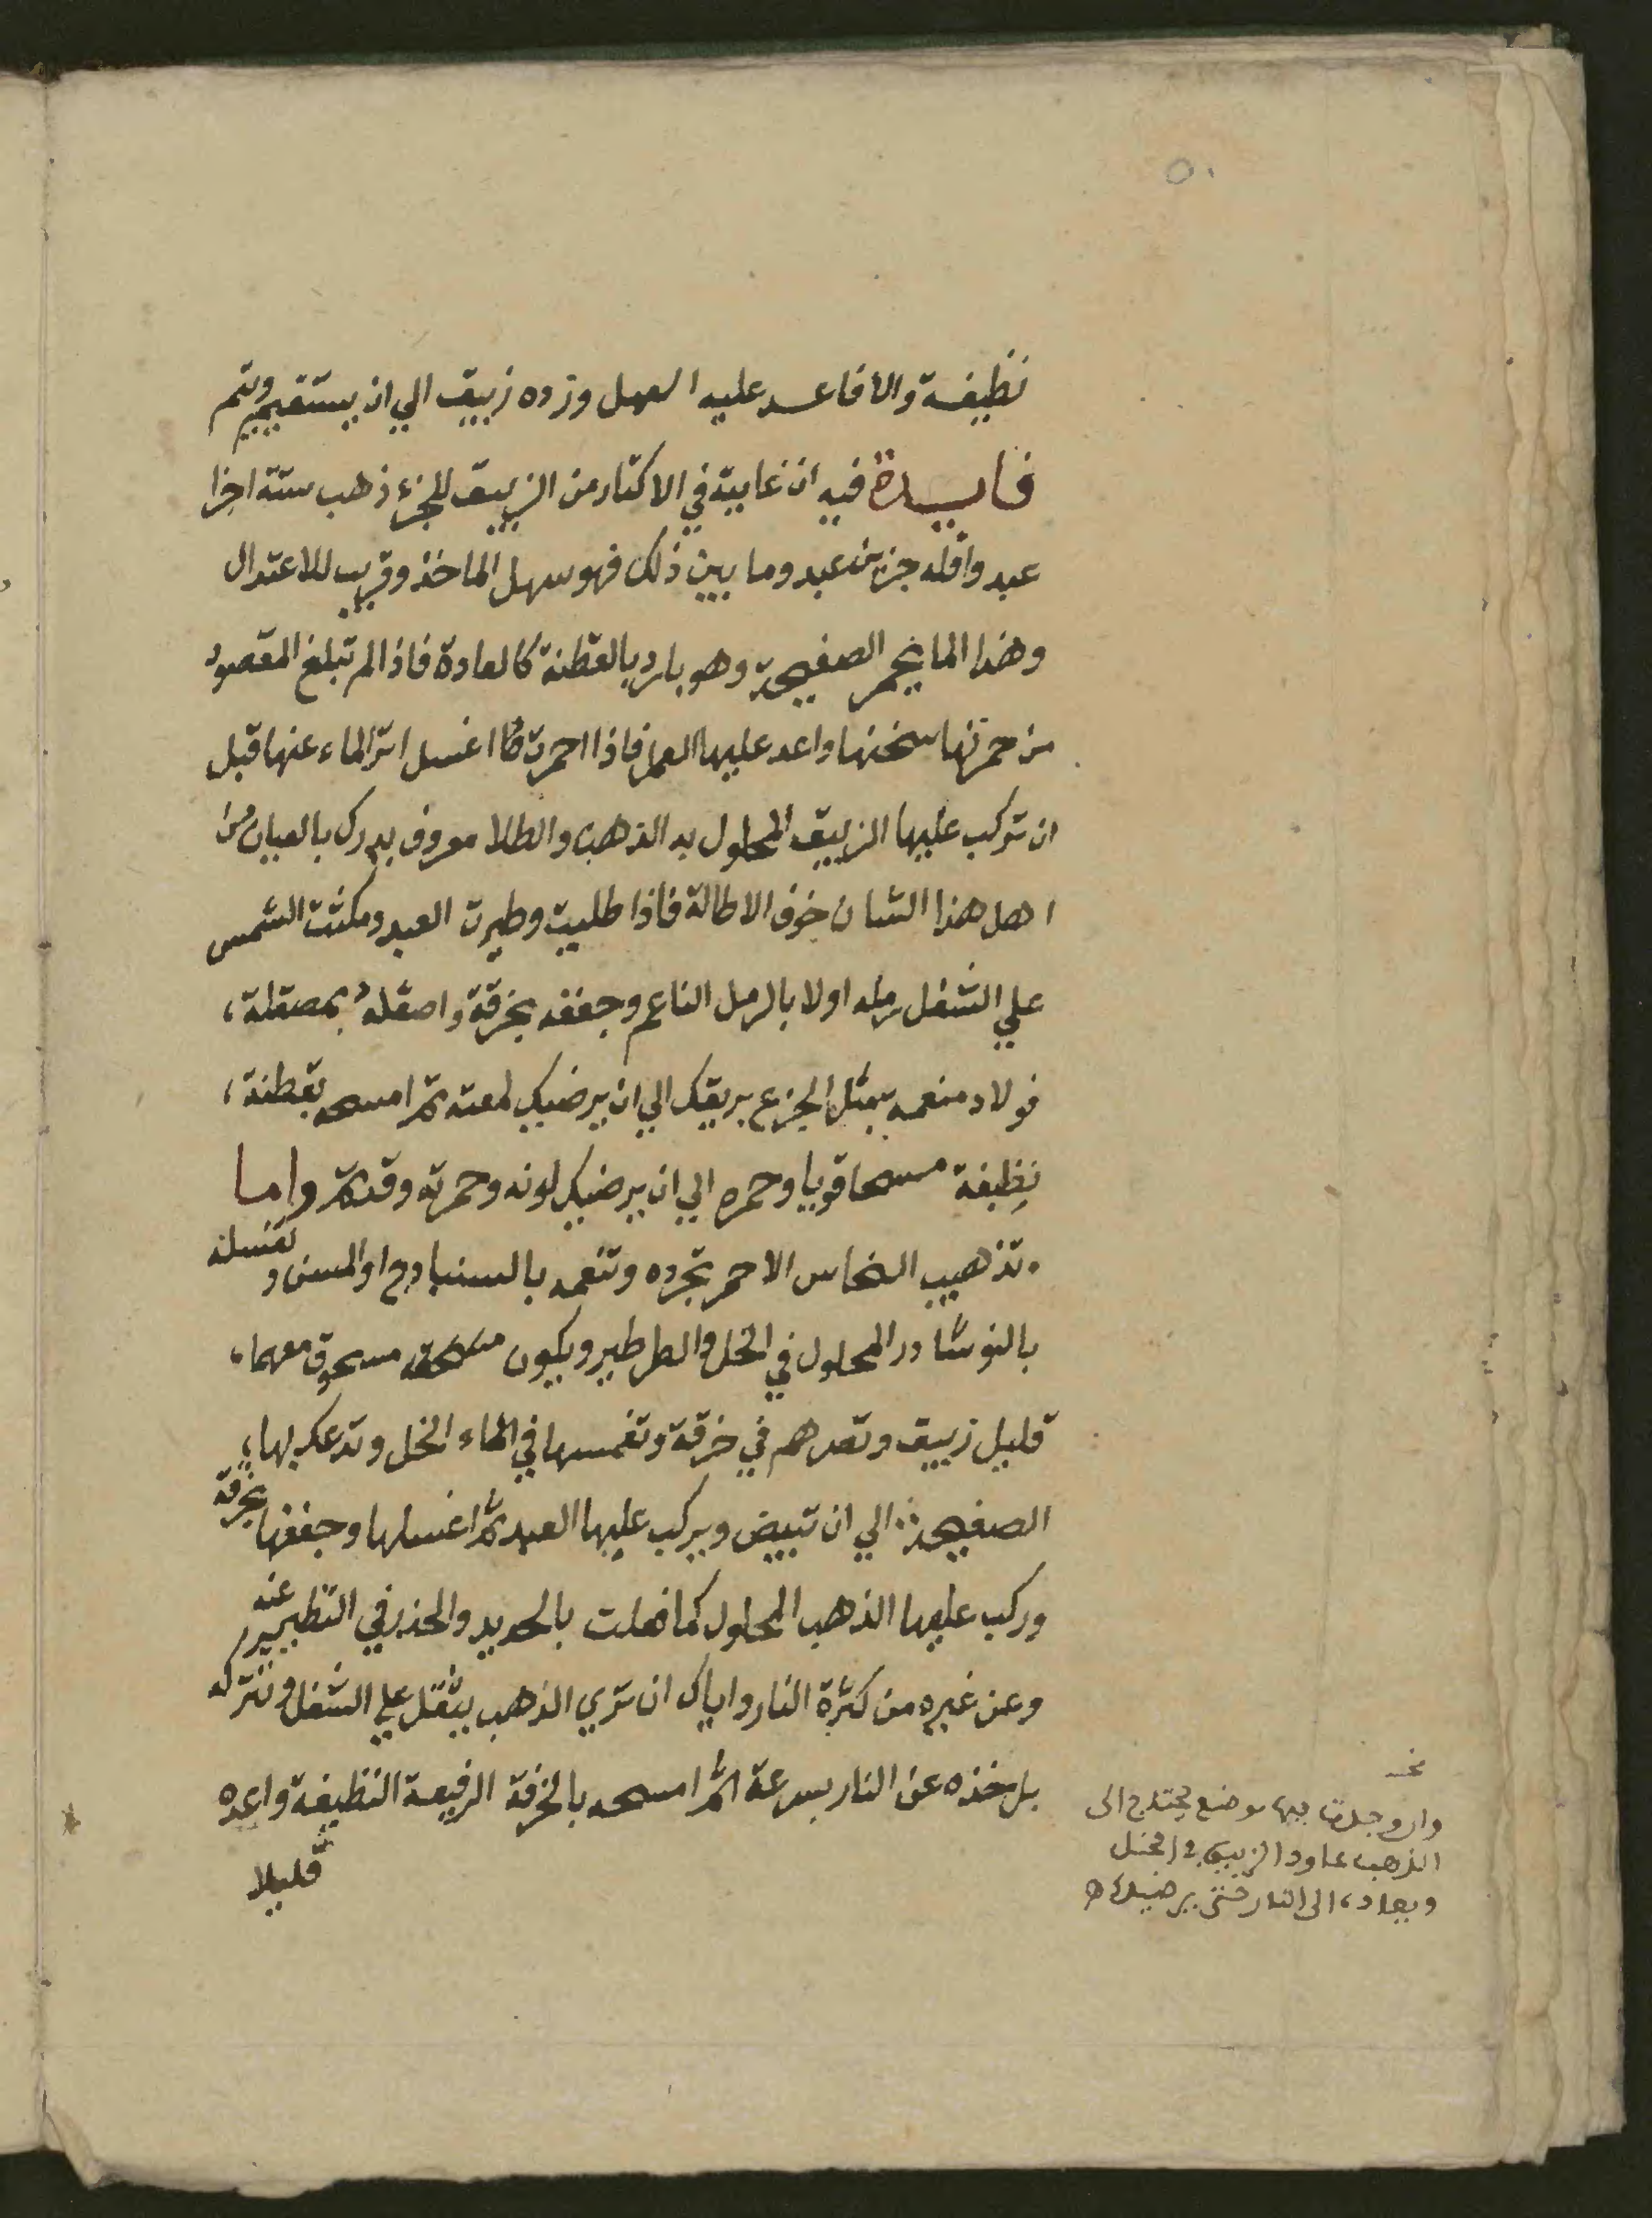 ٥٠
نظيفة والا فاعد عليه العمل وزده زيبق الي ان يستقيم ويتم
فايدة فيه ان غاية في الاكثار من الزيبق للجزء ذهب ستة اجزا
عبد واقله جزين عبد وما بين ذلك فهو سهل الماخذ وقريب للاعتدال
وهذا الما يحمر الصفيحة وهو بارد بالقطنة كالعادة فاذا لم تبلغ المقصود
من حمرتها سخنها واعد عليها العمل فاذا احمرت اغسل اثر الماء عنها قبل
ان تركب عليها الزيبق المحلول به الذهب والطلا معروف يدرك بالعيان من
اهل هذا الشان خوف الاطالة فاذا طليت وطيرت العبد ومكثت الشمس
علي الشغل رمله اولا بالرمل الناعم وجففه بخرقة واصقله بمصقلة
فولاد منعمه بمثل الجزع بريقك الي ان يرضيك لمعته ثم امسحه بقطنة
نظيفة مسحا قويا وحمره الي ان يرضيك لونه وحمرته وقد تم واما
تذهيب النحاس الاحمر تجرده وتنعمه بالسنبادج او المسن وتغسله
بالنوشادر المحلول في الخل والطرطير ويكون مسحوق معهما
قليل زيبق وتصرهم في خرقة وتغمسها في الماء الخل وتدعك بها
الصفيحة الي ان تبيض ويركب عليها العبد ثم اغسلها وجففها بخرقة
وركب عليها الذهب المحلول كما فعلت بالحديد والحذر في التطيير عنه
وعن غيره من كثرة النار واياك ان تري الذهب يثقل علي الشغل وتتركه
بل خذه عن النار بسرعة ثم امسحه بالخرقة الرفيعة النظيفة واعده
قليلا
وان وجدت فيها موضع يحتاج الى
الذهب عاود الزيبق
ويعاد الى النار حتى يرضيك